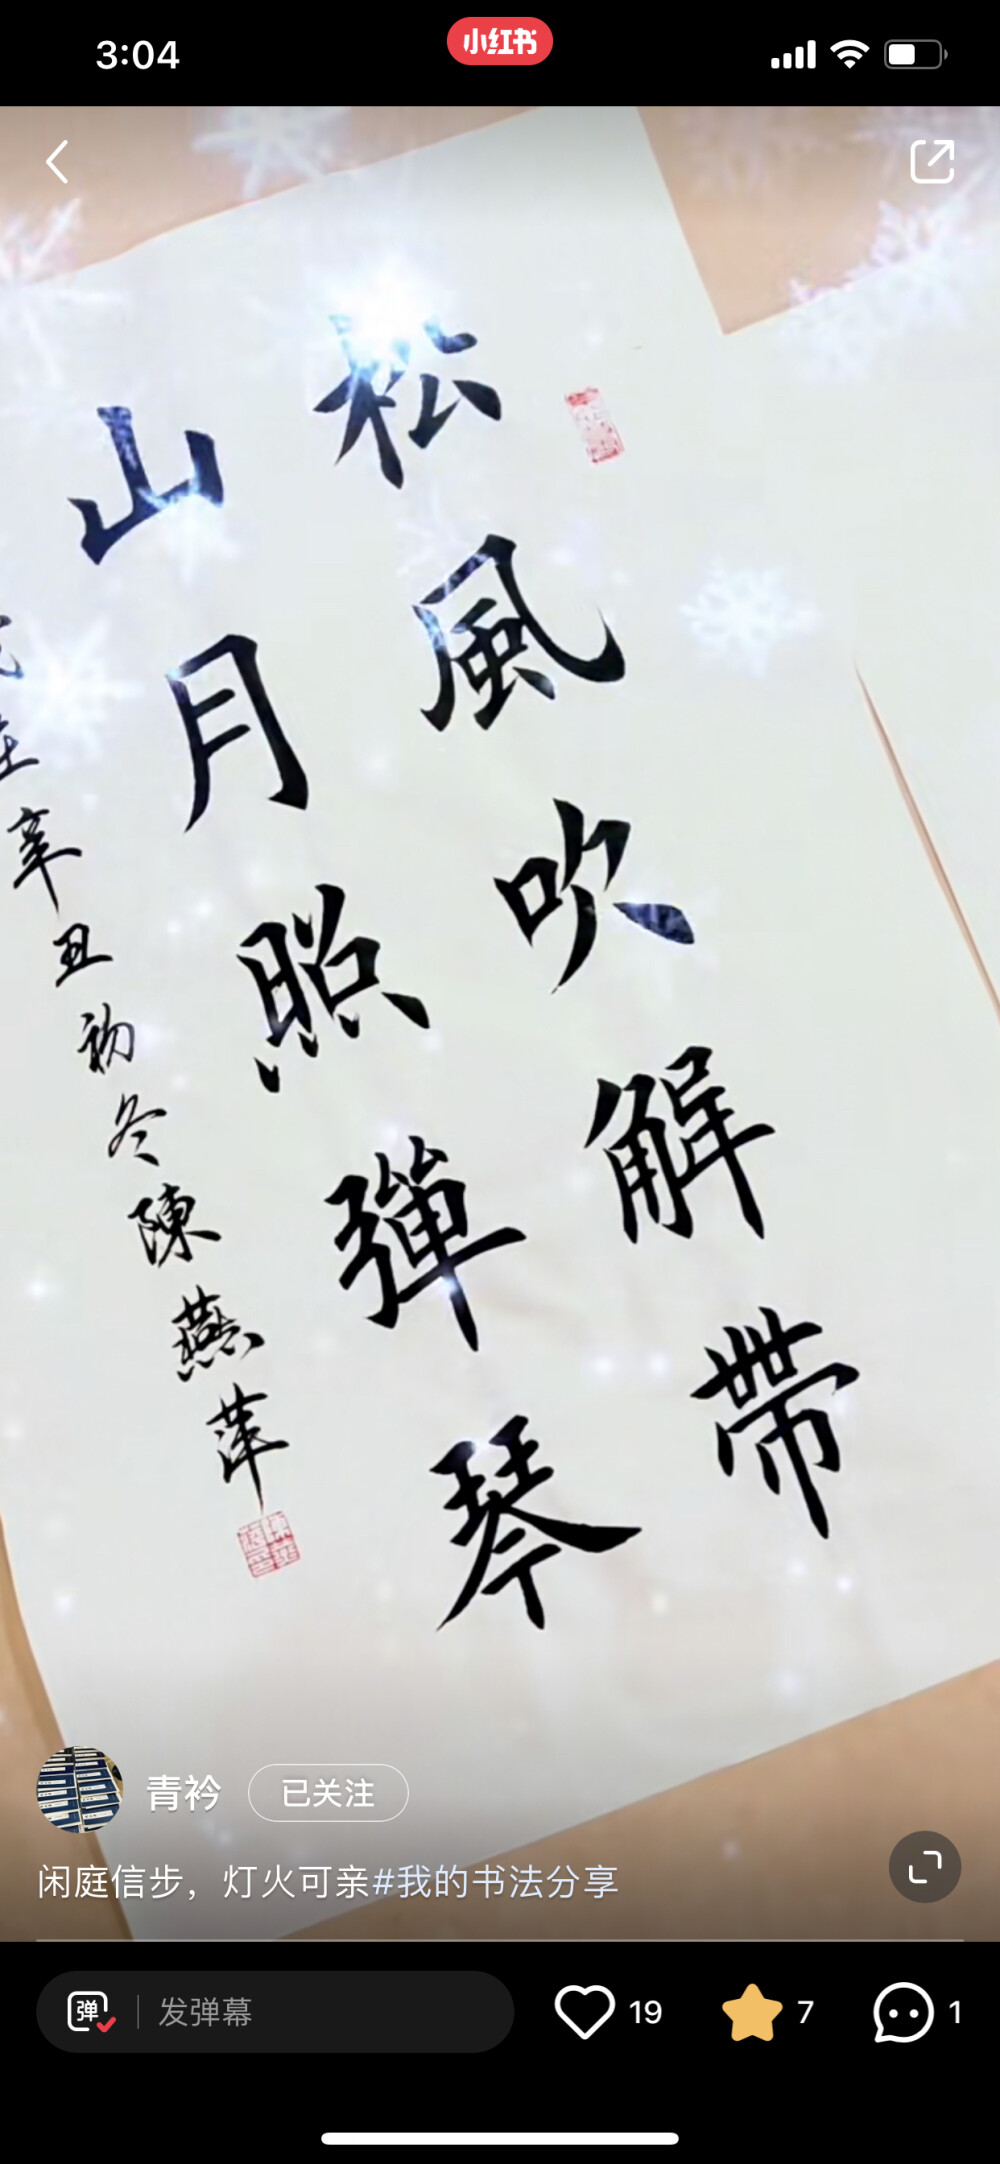 3:04
小红书
松風吹解帶
山月照彈琴
辛丑初冬陳燕萍
青衿
已关注
闲庭信步，灯火可亲#我的书法分享
弹
发弹幕
19
7
1